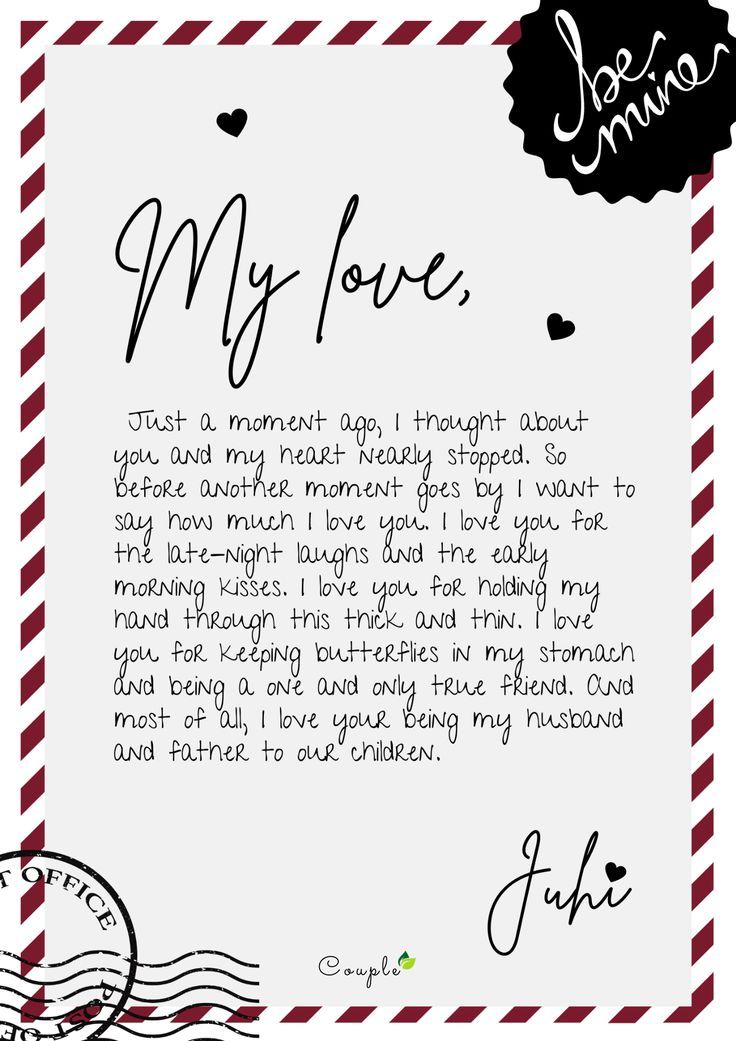 be
mine
My love,
Just a moment ago, I thought about
you and my heart nearly stopped. So
before another moment goes by I want to
say how much I love you. I love you for
the late-night laughs and the early
morning kisses. I love you for holding my
hand through this thick and thin. I love
you for keeping butterflies in my stomach
and being a one and only true friend. And
most of all, I love your being my husband
and father to our children.
Juhi
T OFFICE
POST OF
Couple